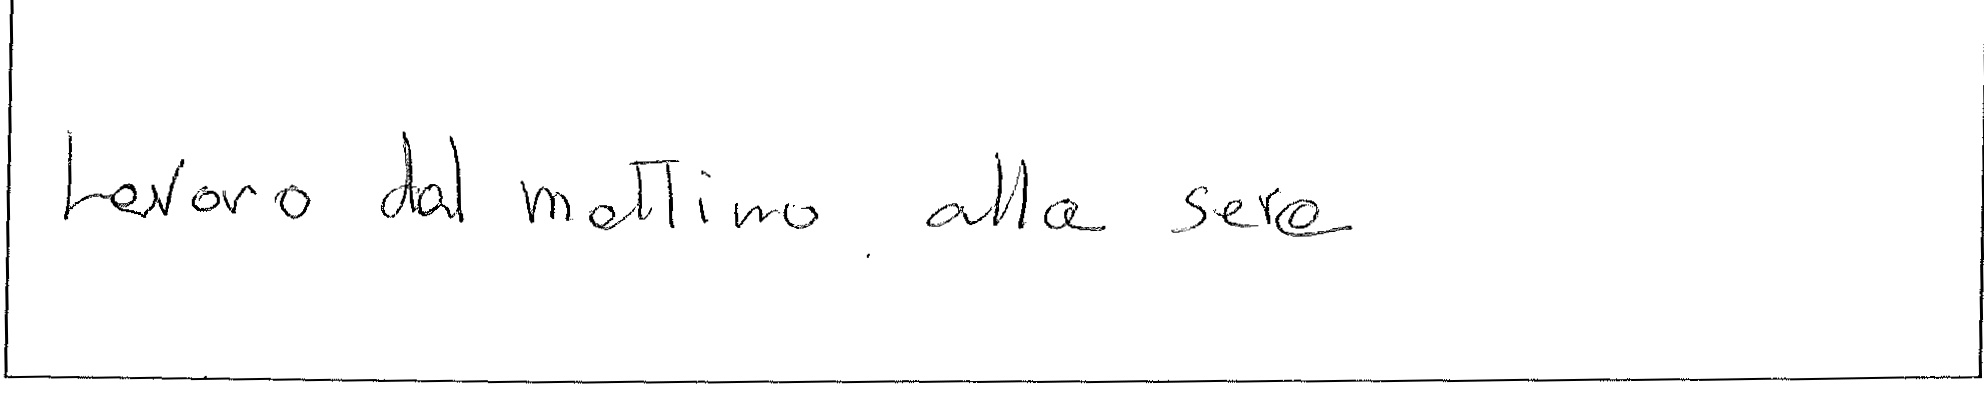 Lavoro dal mattino alla sera